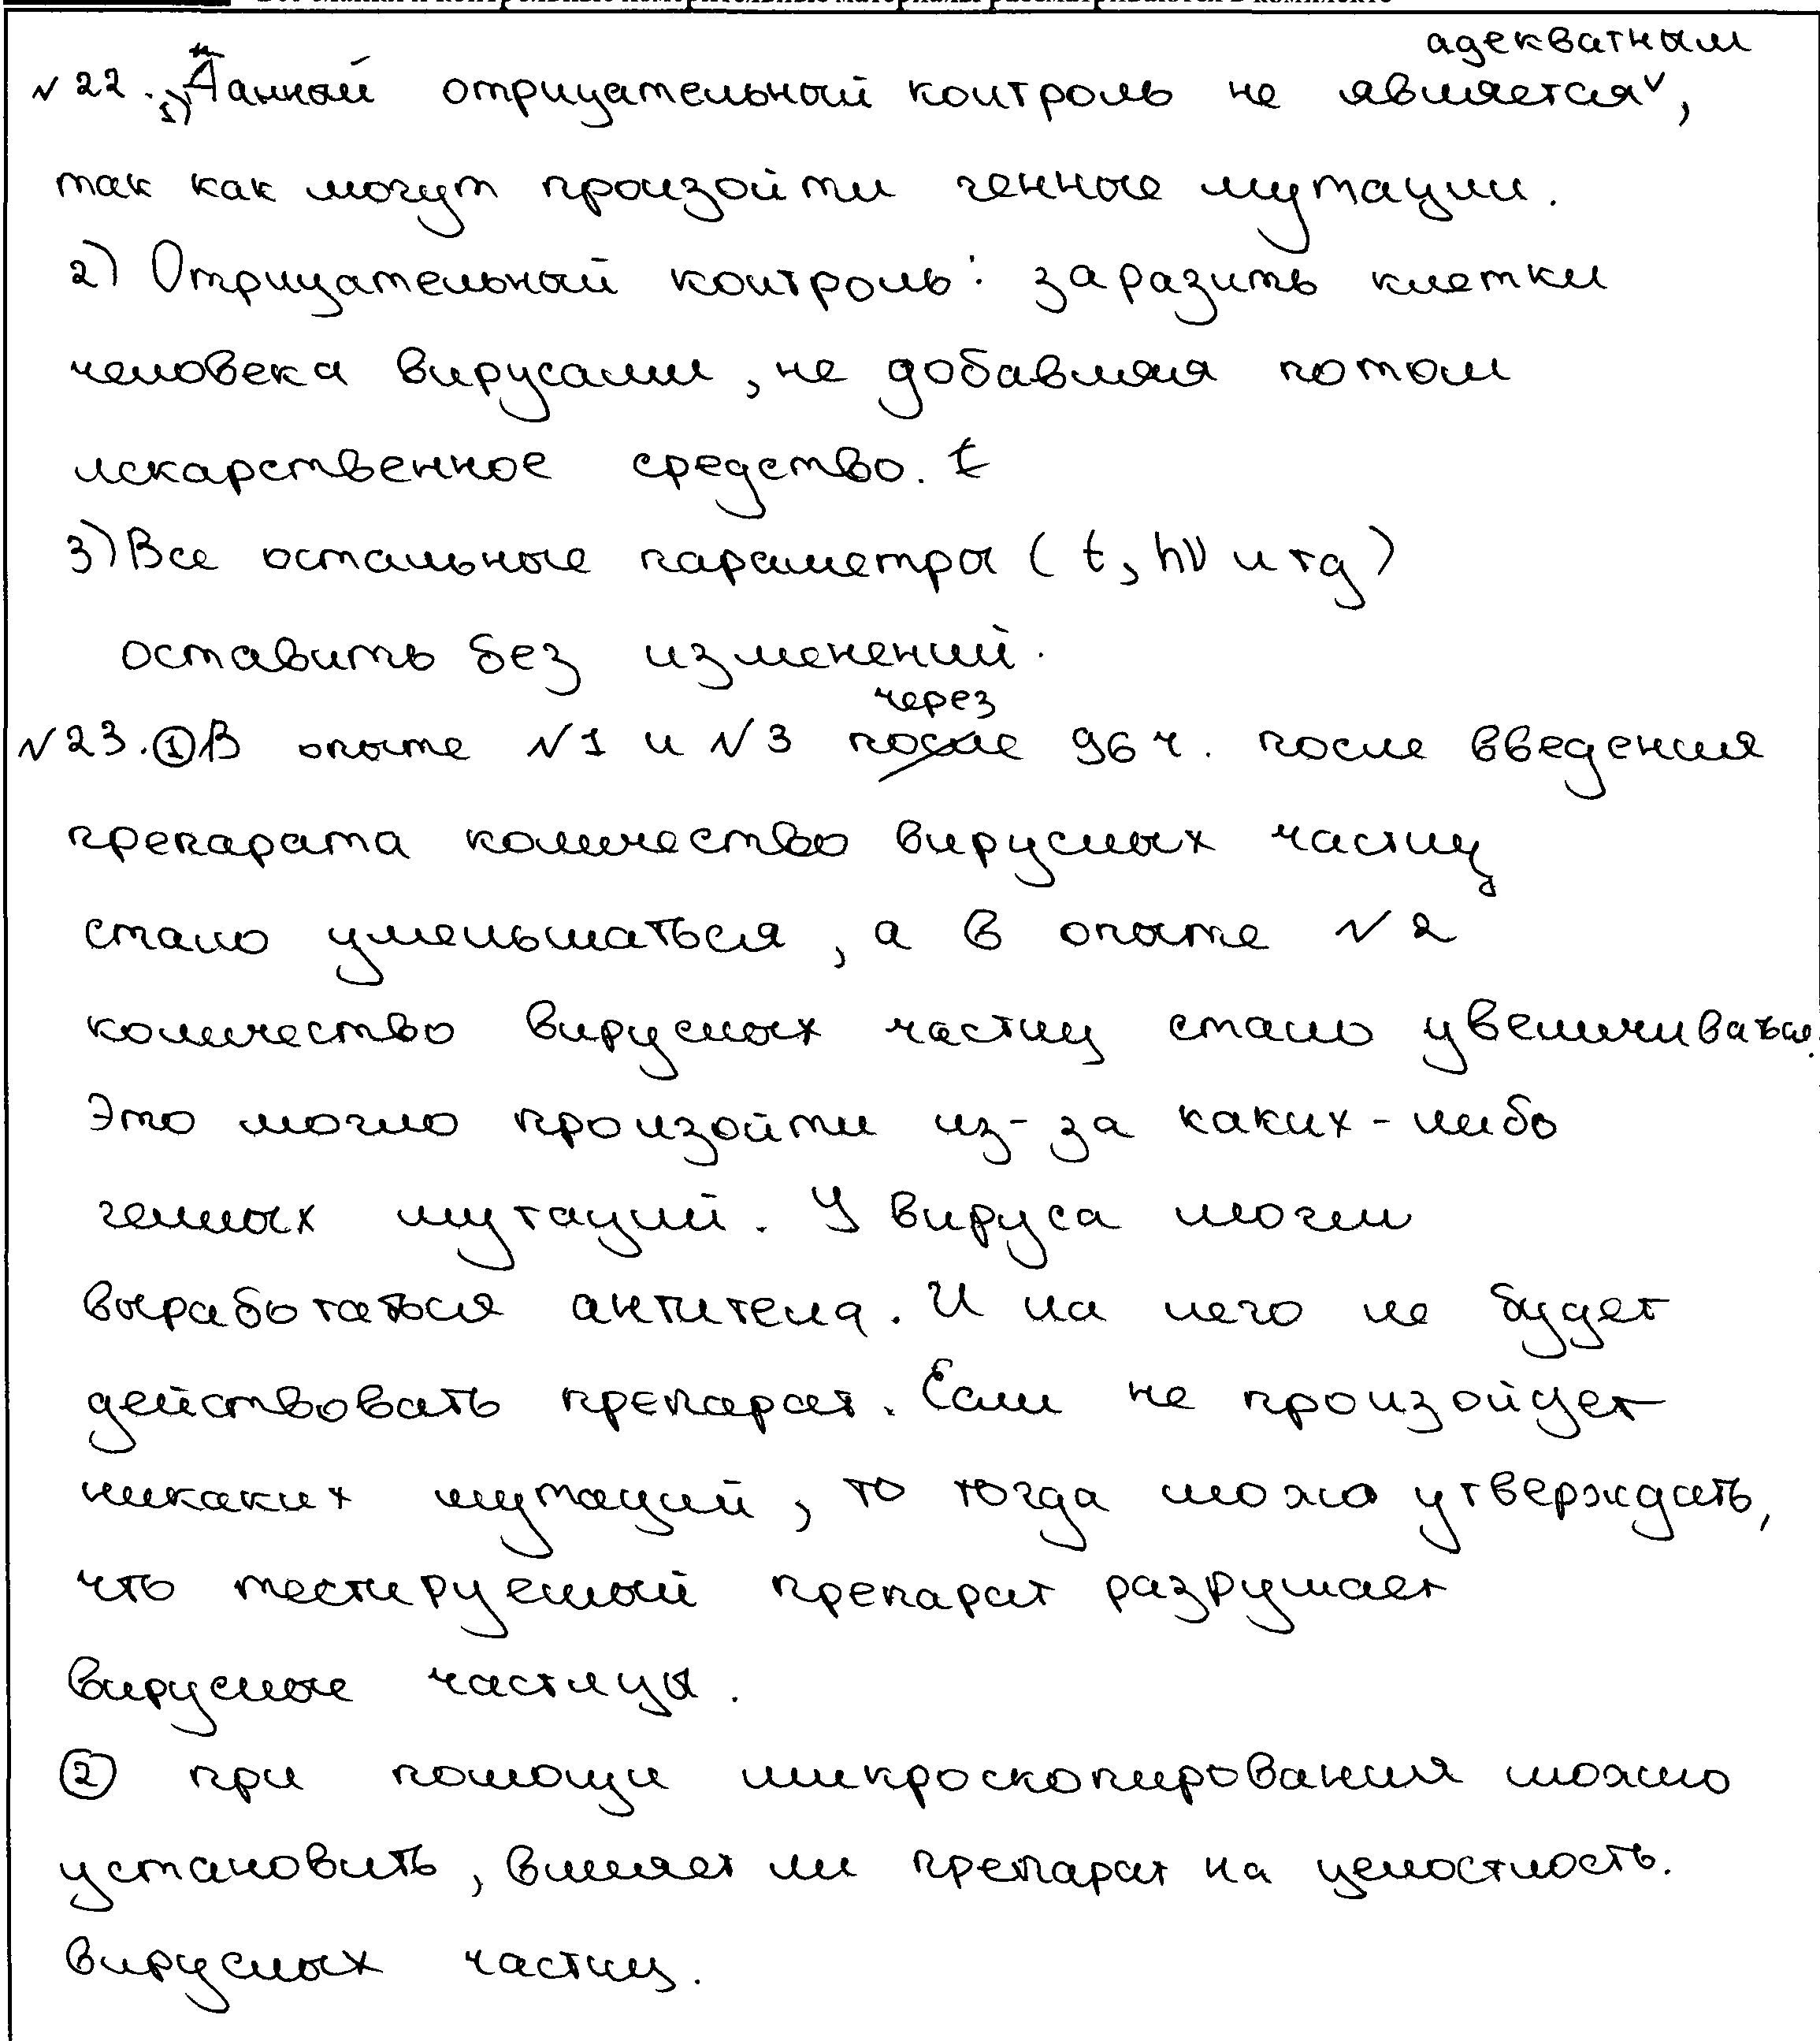 №22. 1) Данный отрицательный контроль не является адекватным,
так как могут произойти генные мутации.
2) Отрицательный контроль: заразить клетки
человека вирусами, не добавляя потом
лекарственное средство.
3) Все остальные параметры (t, hν и тд)
оставить без изменений.
№23. ① В опыте №1 и №3 через 96 ч. после введения
препарата количество вирусных частиц
стало уменьшаться, а в опыте №2
количество вирусных частиц стало увеличиваться.
Это могло произойти из-за каких-либо
генных мутаций. У вируса могли
выработаться антитела. И на него не будет
действовать препарат. Если не произойдет
никаких мутаций, то тогда можно утверждать,
что тестируемый препарат разрушает
вирусные частицы.
② при помощи микроскопирования можно
установить, влияет ли препарат на целостность.
вирусных частиц.